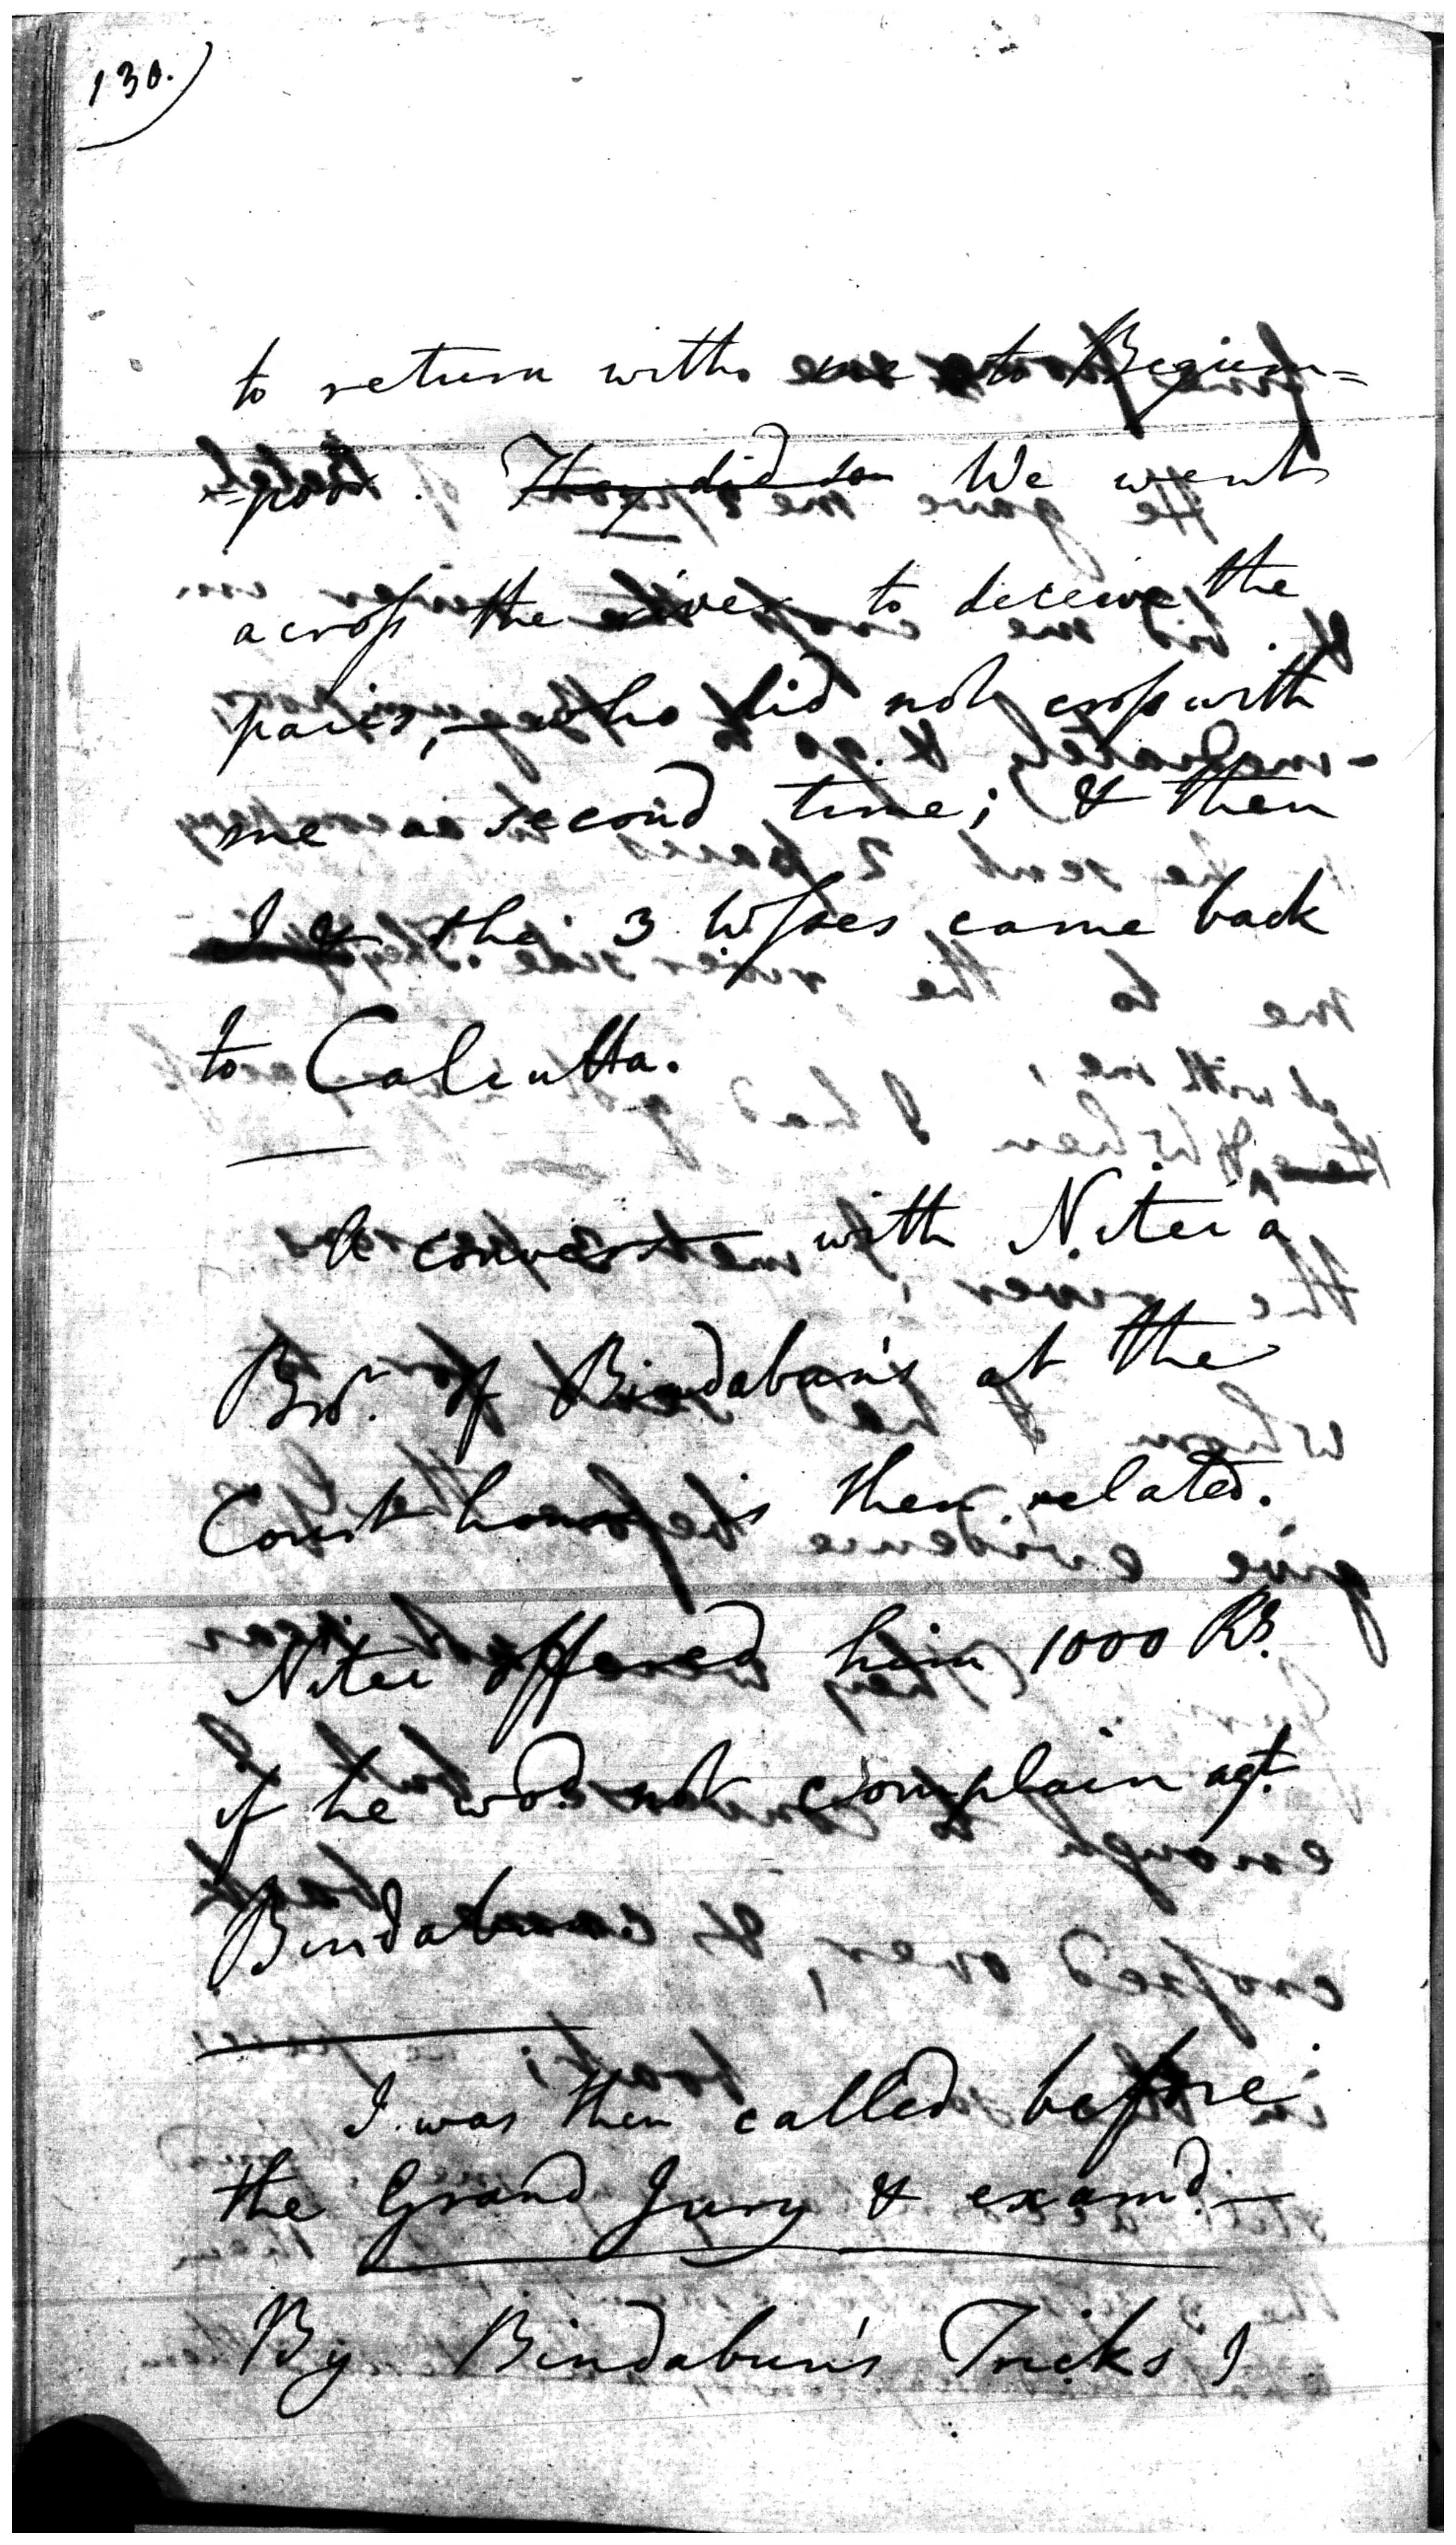 130.
to return with me to Begum=
=poor. They did so We went
across the river to deceive the
paies, — who did not cross with
me a second time; & then
I & the 3 Wsses came back
to Calcutta.
A converst with Nitei a
Bror. of Bindabun's at the
Court house is then related.
Nitei offered him 1000 Rs.
if he wod. not complain agt.
Bindabun
I was then called before
the Grand Jury & examd. —
By Bindabun's Tricks I